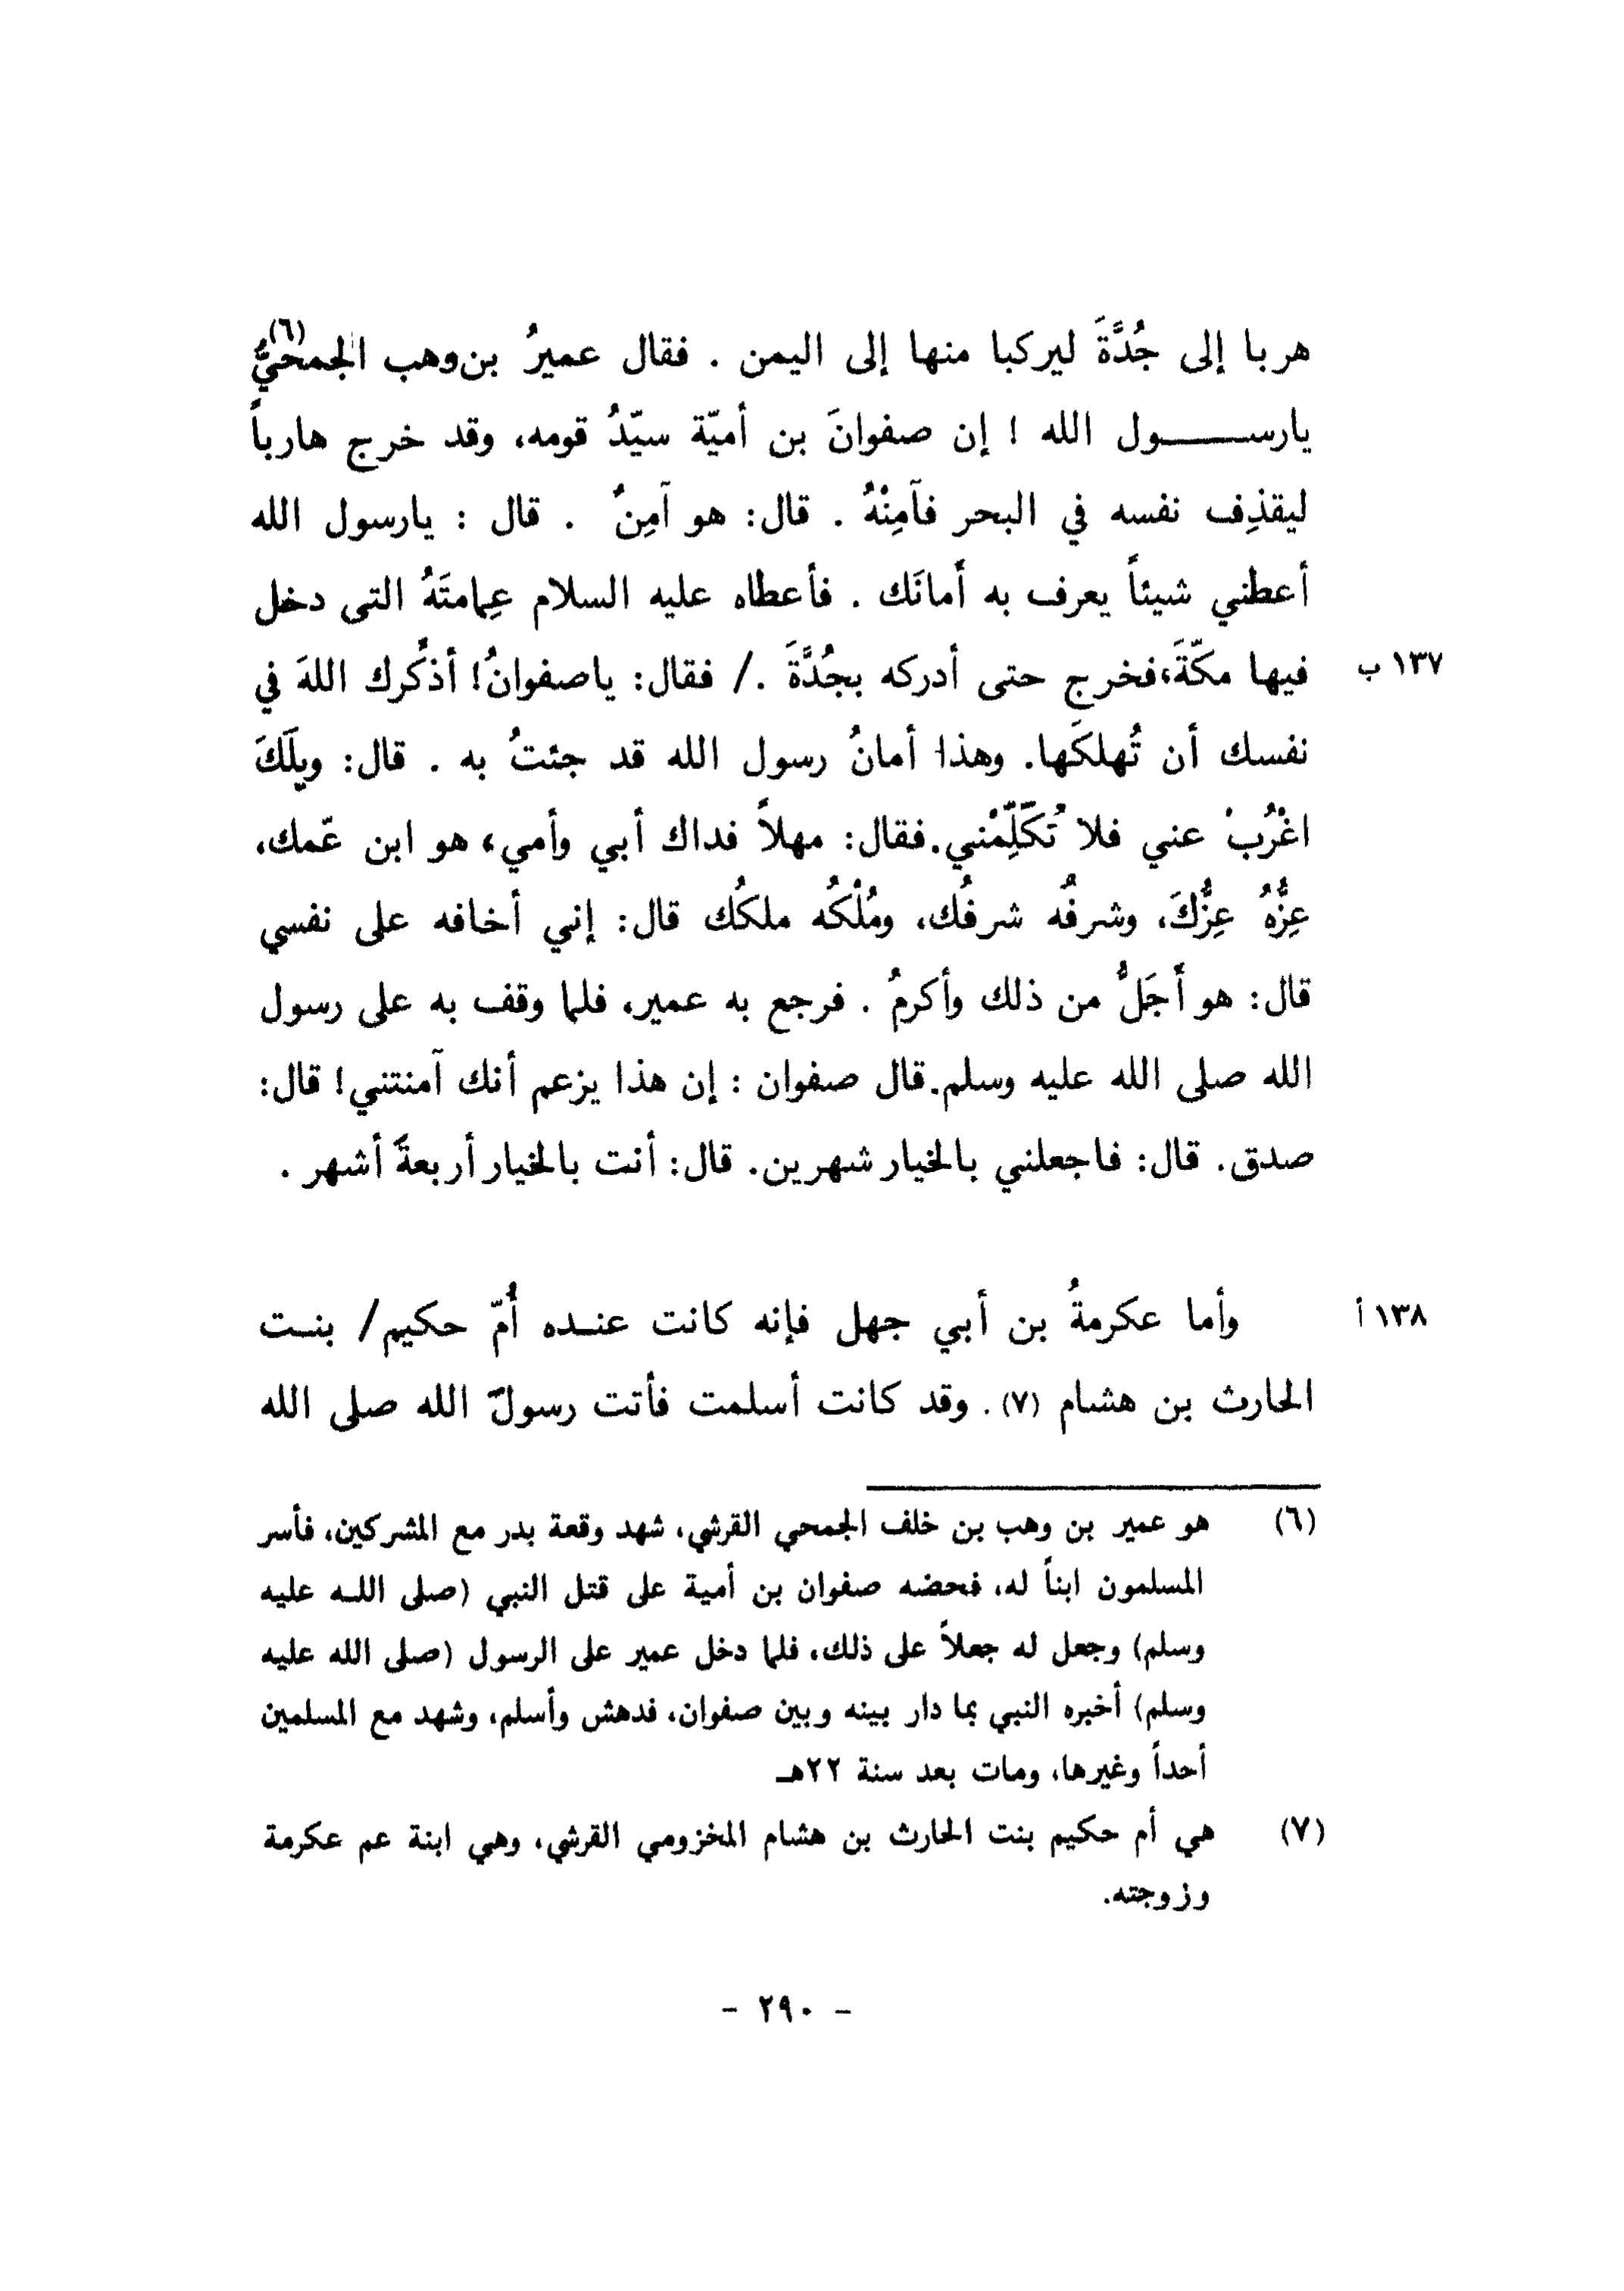 هربا إلى جُدَّةَ ليركبا منها إلى اليمن . فقال عميرُ بن وهب الجمحيُّ (٦)
يارســـــــول الله ! إن صفوانَ بن أميّة سيّدُ قومه، وقد خرج هارباً
ليقذِف نفسه في البحر فآمِنْهُ . قال: هو آمِنٌ . قال : يارسول الله
أعطني شيئاً يعرف به أَمانَك . فأعطاه عليه السلام عِمامتَهُ التى دخل
فيها مكّةَ،فخرج حتى أدركه بجُدَّةَ ./ فقال: ياصفوانُ! أذكّرك اللهَ في
١٣٧ ب
نفسك أن تُهلكَها. وهذا أمانُ رسول الله قد جئتُ به . قال: ويلَكَ
اغْرُبْ عني فلا تُكَلِّمْني.فقال: مهلاً فداك أبي وأمي، هو ابن عّمك،
عِزُّهُ عِزُّكَ، وشرفُه شرفُك، ومُلْكُه ملكُك قال: إني أخافه على نفسي
قال: هو أَجَلُّ من ذلك وأكرمُ . فرجع به عمير، فلما وقف به على رسول
الله صلى الله عليه وسلم.قال صفوان : إن هذا يزعم أنك آمنتني! قال:
صدق. قال: فاجعلني بالخيار شهرين. قال: أنت بالخيار أربعةَ أشهر .
وأما عكرمةُ بن أبي جهل فإنه كانت عنـده أُمّ حكيم/ بنـت
١٣٨ أ
الحارث بن هشام (٧) . وقد كانت أسلمت فأتت رسولَ الله صلى الله
(٦) هو عمير بن وهب بن خلف الجمحي القرشي، شهد وقعة بدر مع المشركين، فأسر
المسلمون ابناً له، فحضه صفوان بن أمية على قتل النبي (صلى اللـه عليه
وسلم) وجعل له جعلاً على ذلك، فلما دخل عمير على الرسول (صلى الله عليه
وسلم) أخبره النبي بما دار بينه وبين صفوان، فدهش وأسلم، وشهد مع المسلمين
أحداً وغيرها، ومات بعد سنة ٢٢هـ
(٧) هي أم حكيم بنت الحارث بن هشام المخزومي القرشي، وهي ابنة عم عكرمة
وزوجته.
- ٢٩٠ -